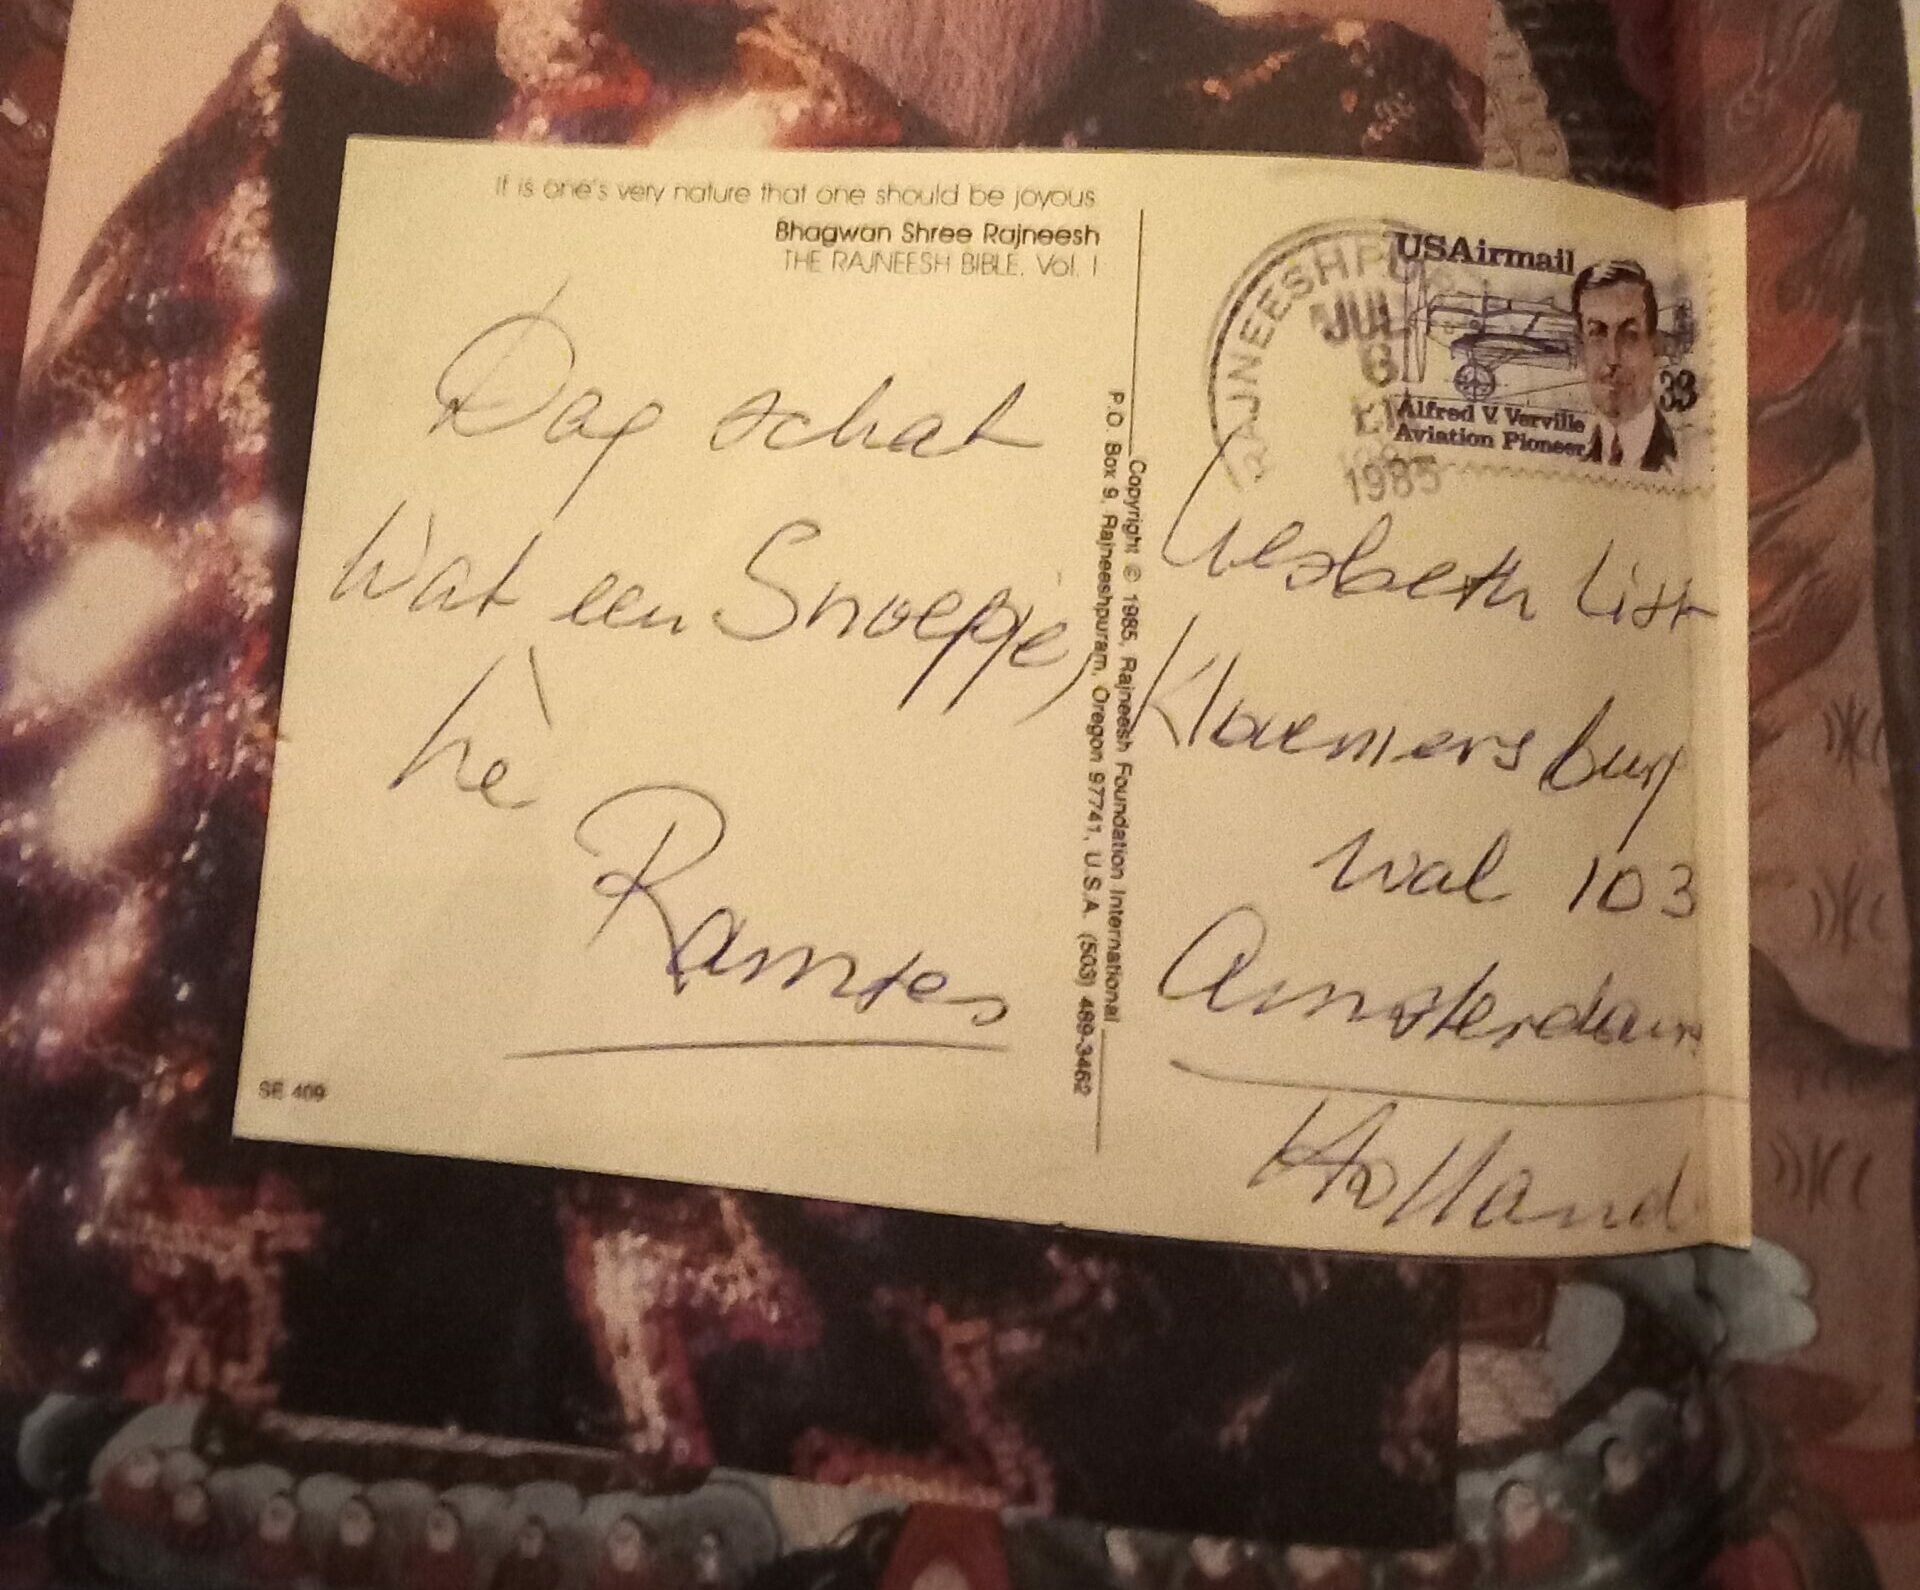 It is one's very nature that one should be joyous.
Bhagwan Shree Rajneesh
THE RAJNEESH BIBLE, Vol. I
Dag schat
Wat een Snoepje,
hè
Ramses
SE 409
Copyright © 1985, Rajneesh Foundation International
P.O. Box 9, Rajneeshpuram, Oregon 97741, U.S.A. (503) 489-3462
RAJNEESHPU
JUL
6
1985
USAirmail
33
Alfred V. Verville
Aviation Pioneer
Liesbeth List
Kloveniersburg
wal 103
Amsterdam
Holland